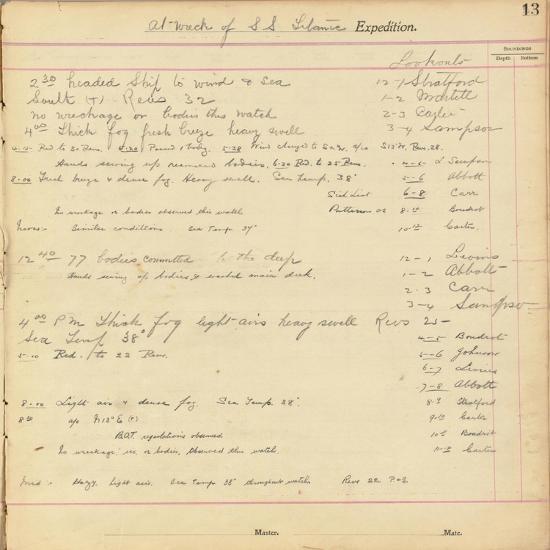 13
At Wreck of S.S. Titanic Expedition.
SOUNDINGS
Depth Bottom
Lookouts
2 30 headed Ship to wind & sea 12-1 Stratford
South (T) - Revs 32 1-2 Martell
no wreckage or bodies this watch 2-3
4 00 Thick fog fresh breeze heavy swell 3-4 Sampson
Red to 30 Revs. Passed 1 body. 5-38 Wind changed to
Hands sewing up recovered bodies. 6-30 Red. to 25 Revs.
5-6 Abbott
8-00 Fresh breeze & dense fog. Heavy swell. Sea Temp. 38°
Sick List 6-8 Carr
No wreckage or bodies observed this watch Patterson 8- Boudrot
Noon:- Similar conditions Sea Temp 10- Carter
12 40 77 bodies committed to the deep 12-1
Hands sewing up bodies & washed main deck. 1-2 Abbott
2-3 Carr
3-4 Sampson
4 00 PM Thick fog light airs heavy swell Revs 25-
Sea Temp 38° 4-5 Boudrot
5-10 Red. to 22 Revs. 5-6 Johnson
6-7
7-8 Abbott
8-00 Light airs & dense fog Sea Temp. 38° Stratford
a/c N 13° E (T) 9- Carter
B.O.T. regulations observed 10- Boudrot
No wreckage, ice, or bodies, observed this watch. 11- Carter
Mid:- Hazy, light airs. Sea Temps 38° throughout watch Revs 22
Master. Mate.